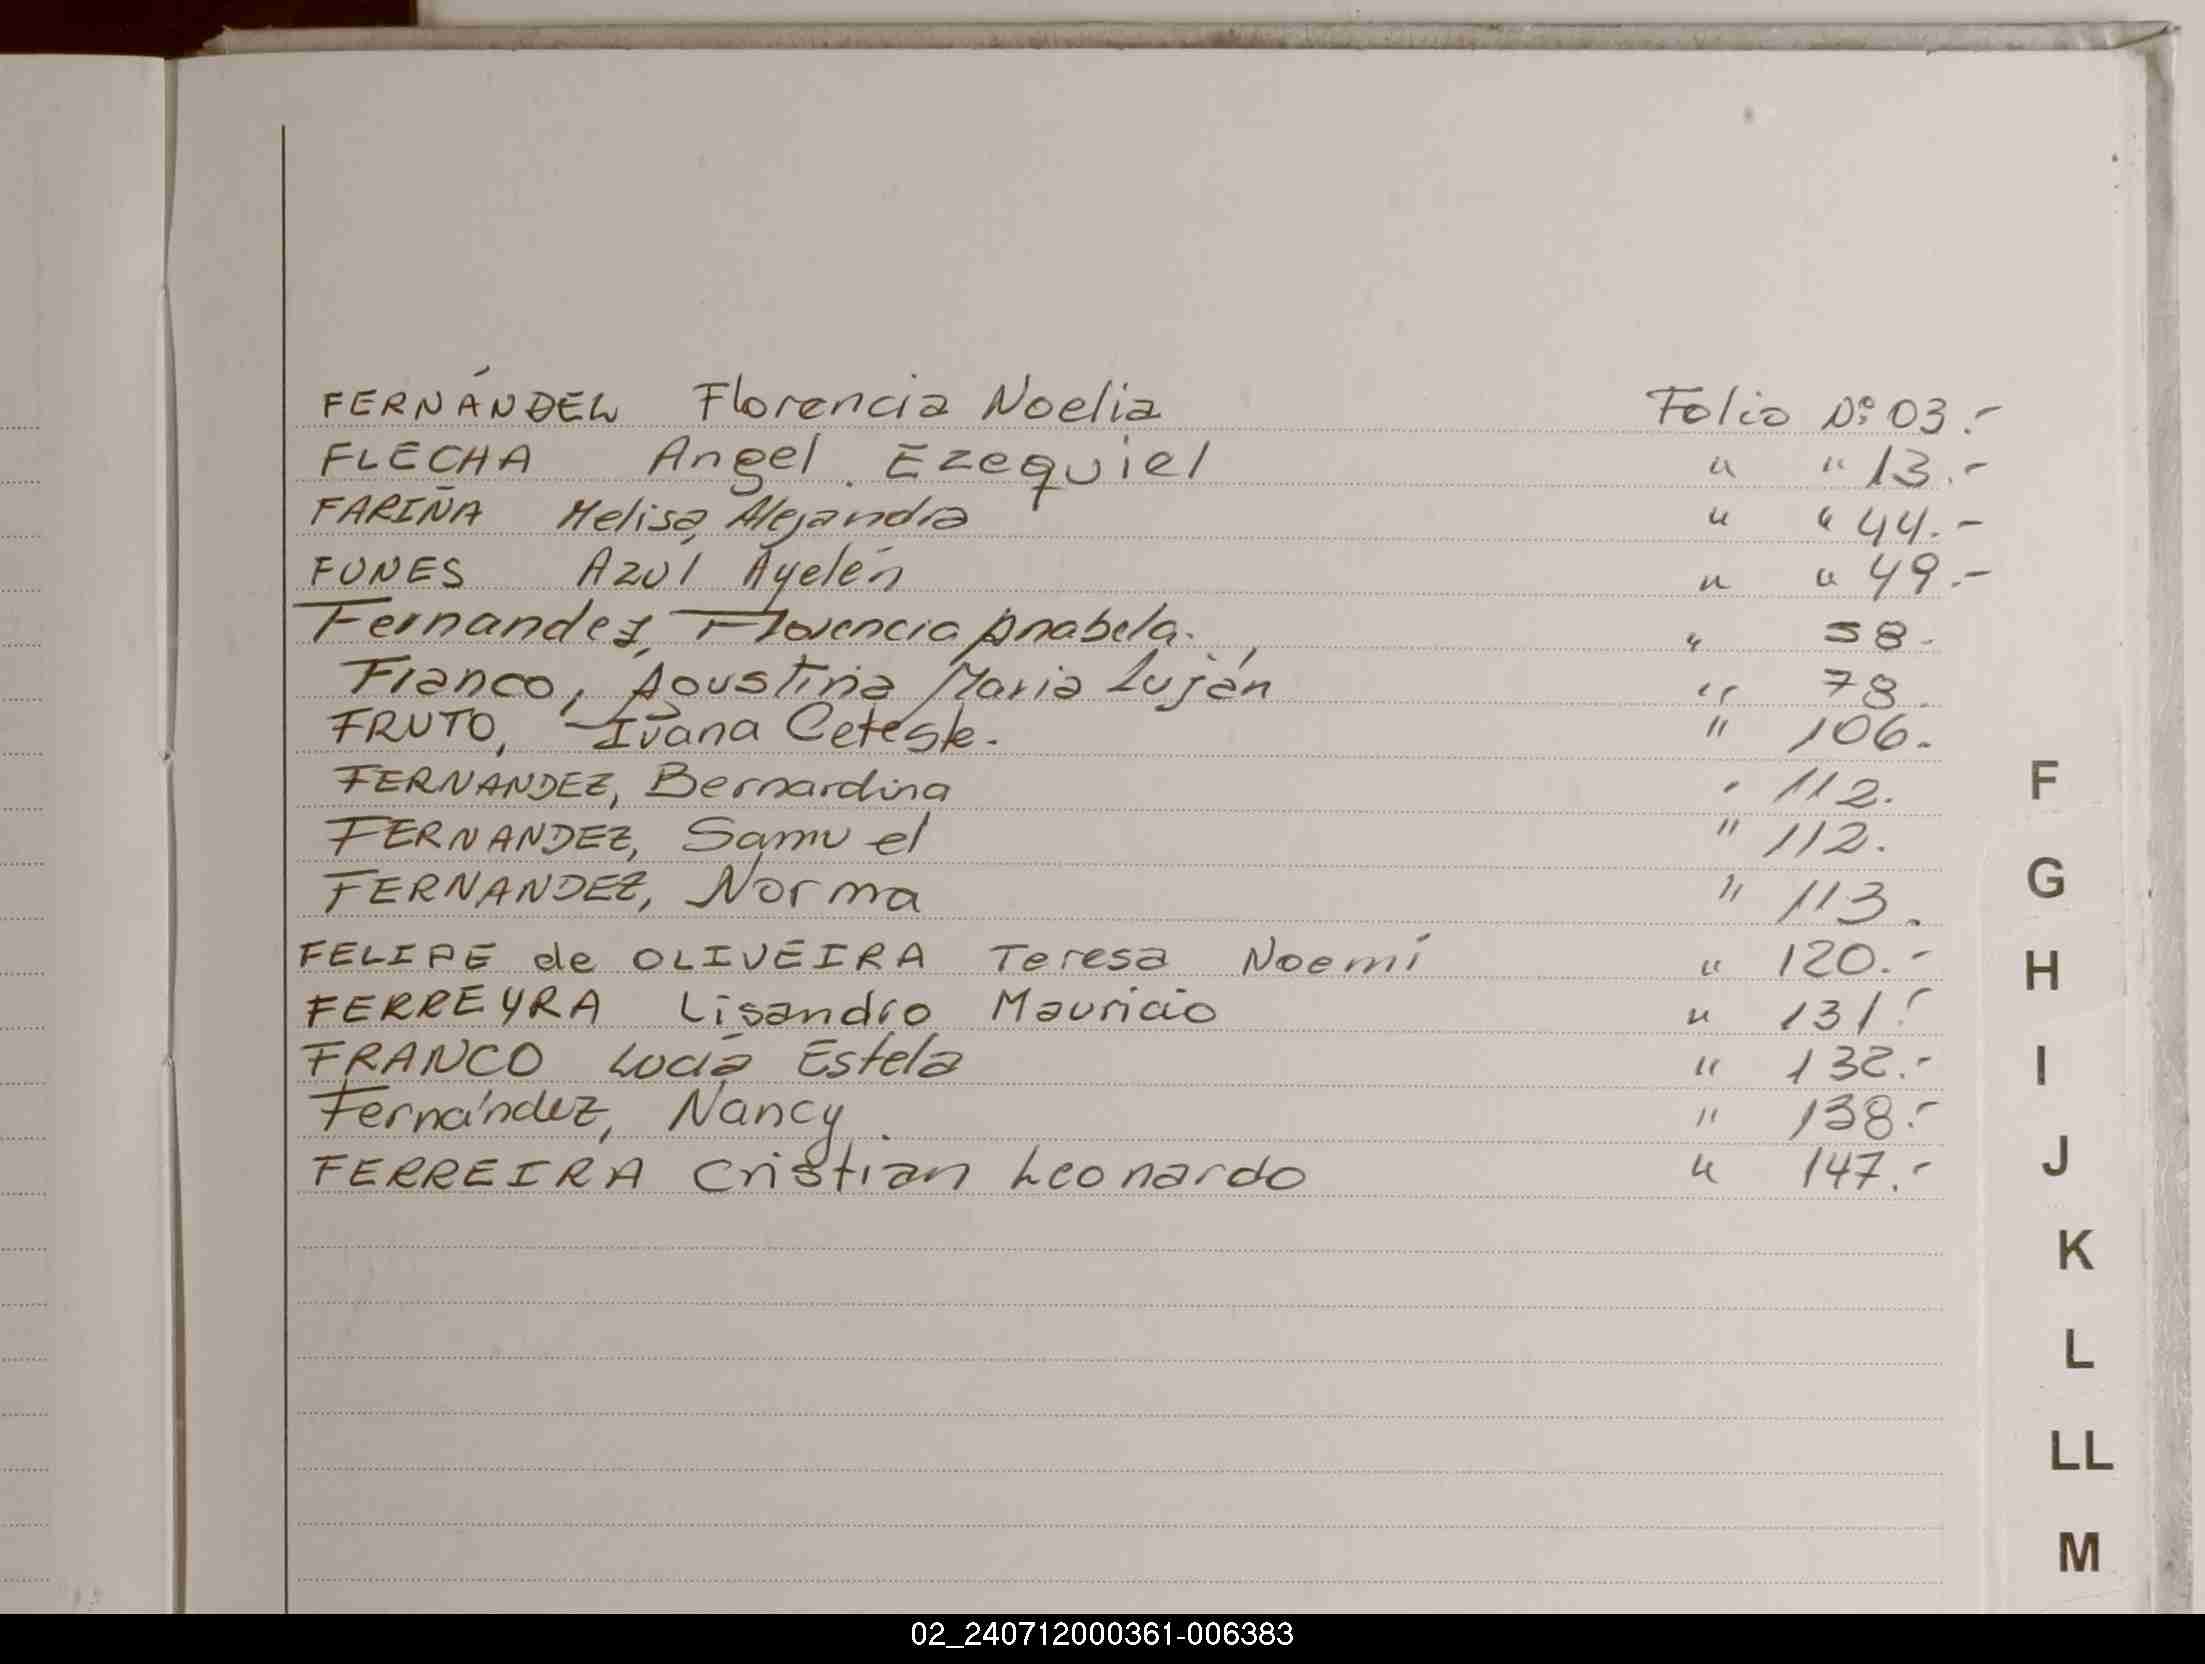 FERNÁNDEZ Florencia Noelia Folio Nº 03.-
FLECHA Angel Ezequiel " " 13.-
FARIÑA Melisa Alejandra " " 44.-
FUNES Azúl Ayelén " " 49.-
Fernandez, Florencia Anabela. " 58.
Franco, Agustina Maria Luján " 78.
FRUTO, Ivana Celeste. " 106.
FERNANDEZ, Bernardina " 112.
FERNANDEZ, Samuel " 112.
FERNANDEZ, Norma " 113.
FELIPE de OLIVEIRA Teresa Noemí " 120.-
FERREYRA Lisandro Mauricio " 131.-
FRANCO Lucía Estela " 132.-
Fernández, Nancy. " 138.-
FERREIRA Cristian Leonardo " 147.-
F
G
H
I
J
K
L
LL
M
02_240712000361-006383